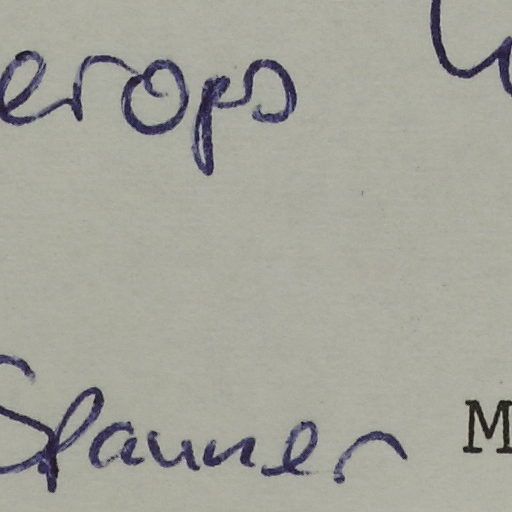 erops
Spanner M